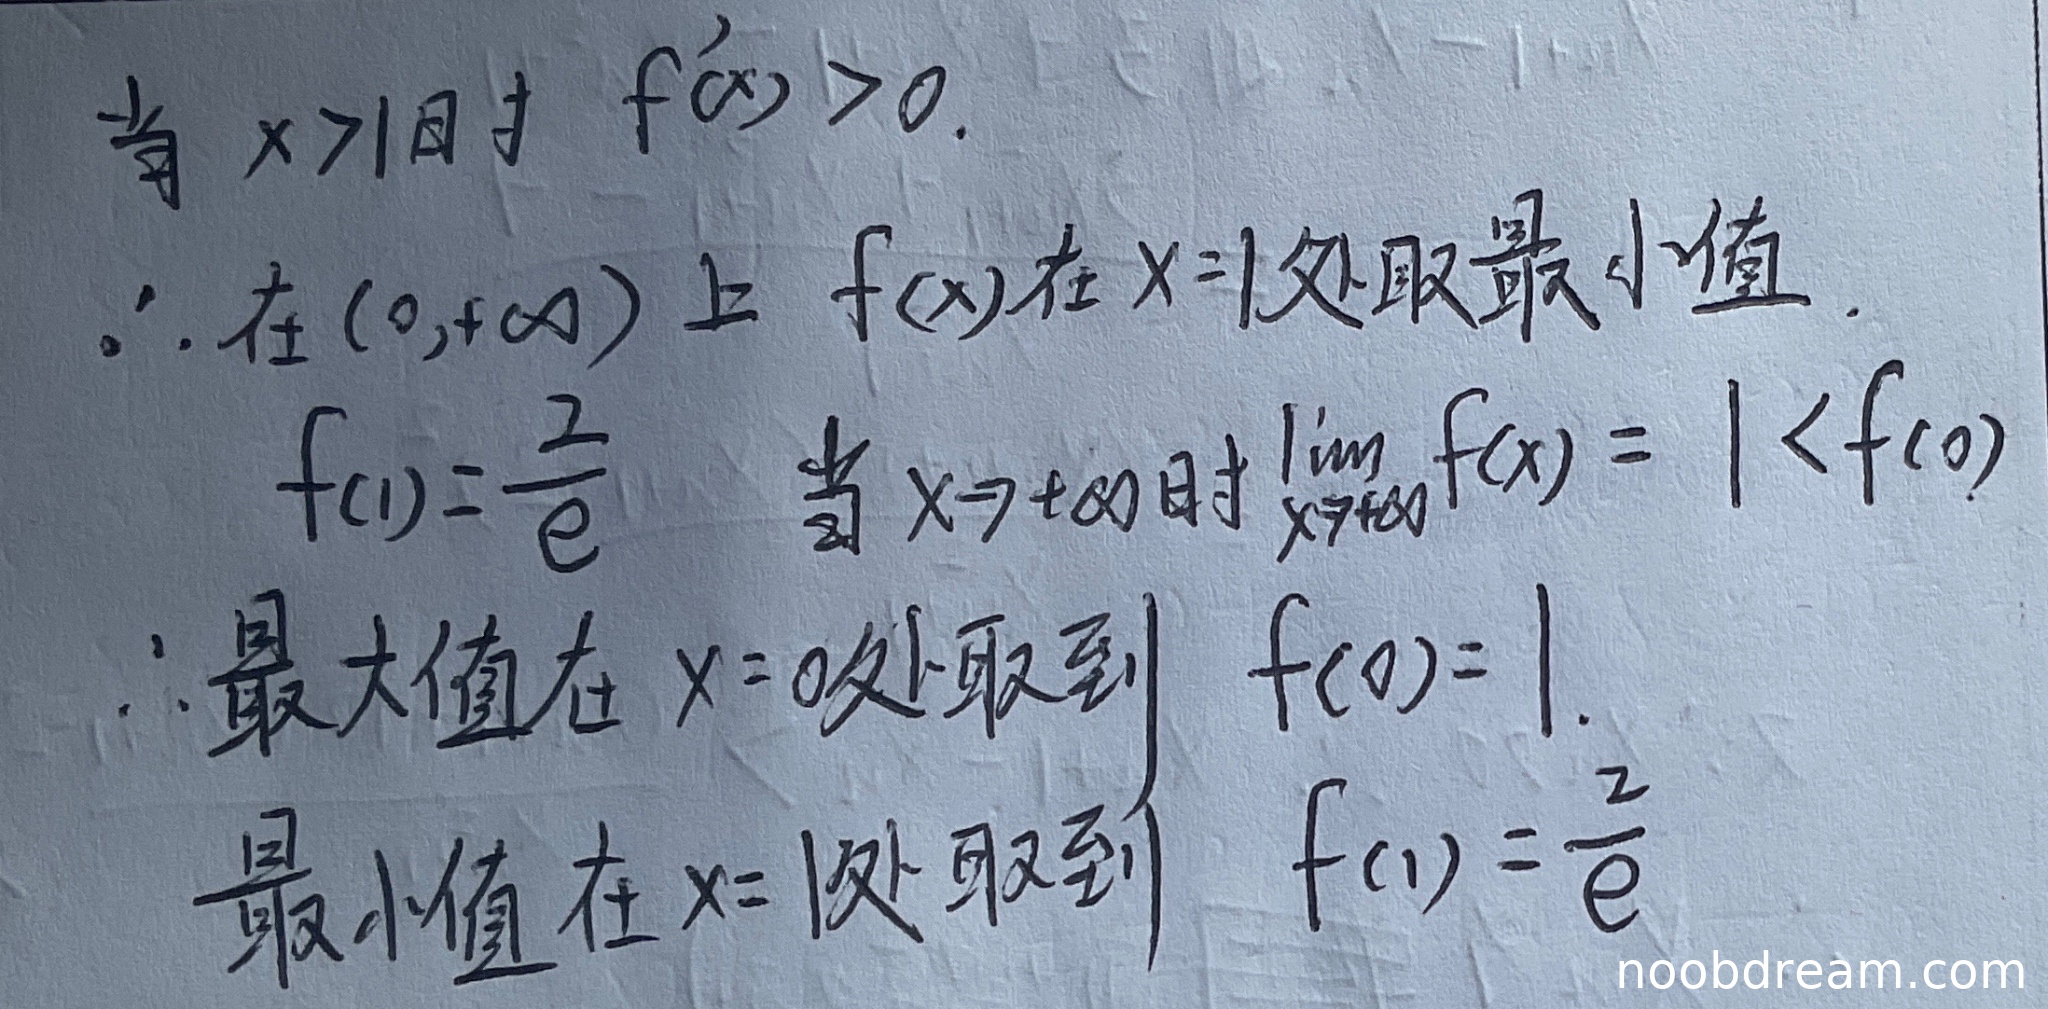 当 x>1时 f'(x) >0.
∴ 在(0,+∞)上 f(x)在x=1处取最小值.
f(1)=2/e 当x→+∞时 lim x→+∞ f(x) = 1<f(0)
∴最大值在 x=0处取到 f(0)=1.
最小值在x=1处取到 f(1)=2/e
noobdream.com